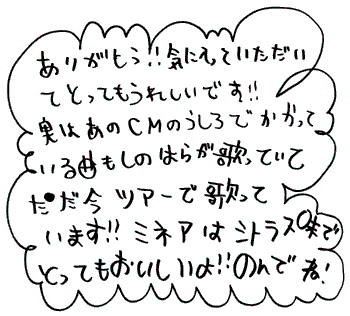 ありがとう!!気にしていただい
てとってもうれしいです!!
実はあのCMのうしろでかかって
いる曲もしのはらが歌っていて
ただ今ツアーで歌って
います!!ミネアはシトラス味で
とってもおいしいよ!!のんでね!